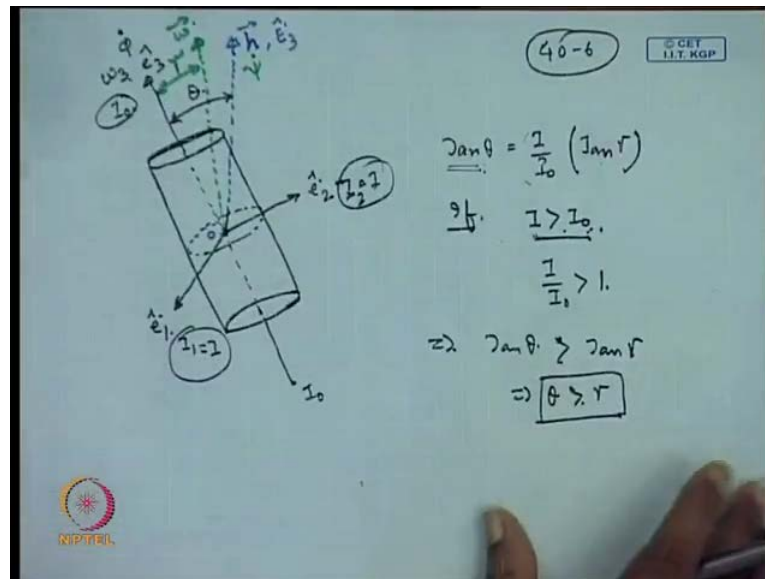 40-6
© CET
I.I.T. KGP
φ̇ ω⃗ h⃗, Ê₃
ω₃ ê₃ γ ψ̇
I₀ θ
ê₂ I₂=I
O
ê₁
I₁=I
I₀
Tan θ = I/I₀ (Tan γ)
If. I > I₀.
I/I₀ > 1.
=> Tan θ. > Tan γ
=> θ > γ
NPTEL